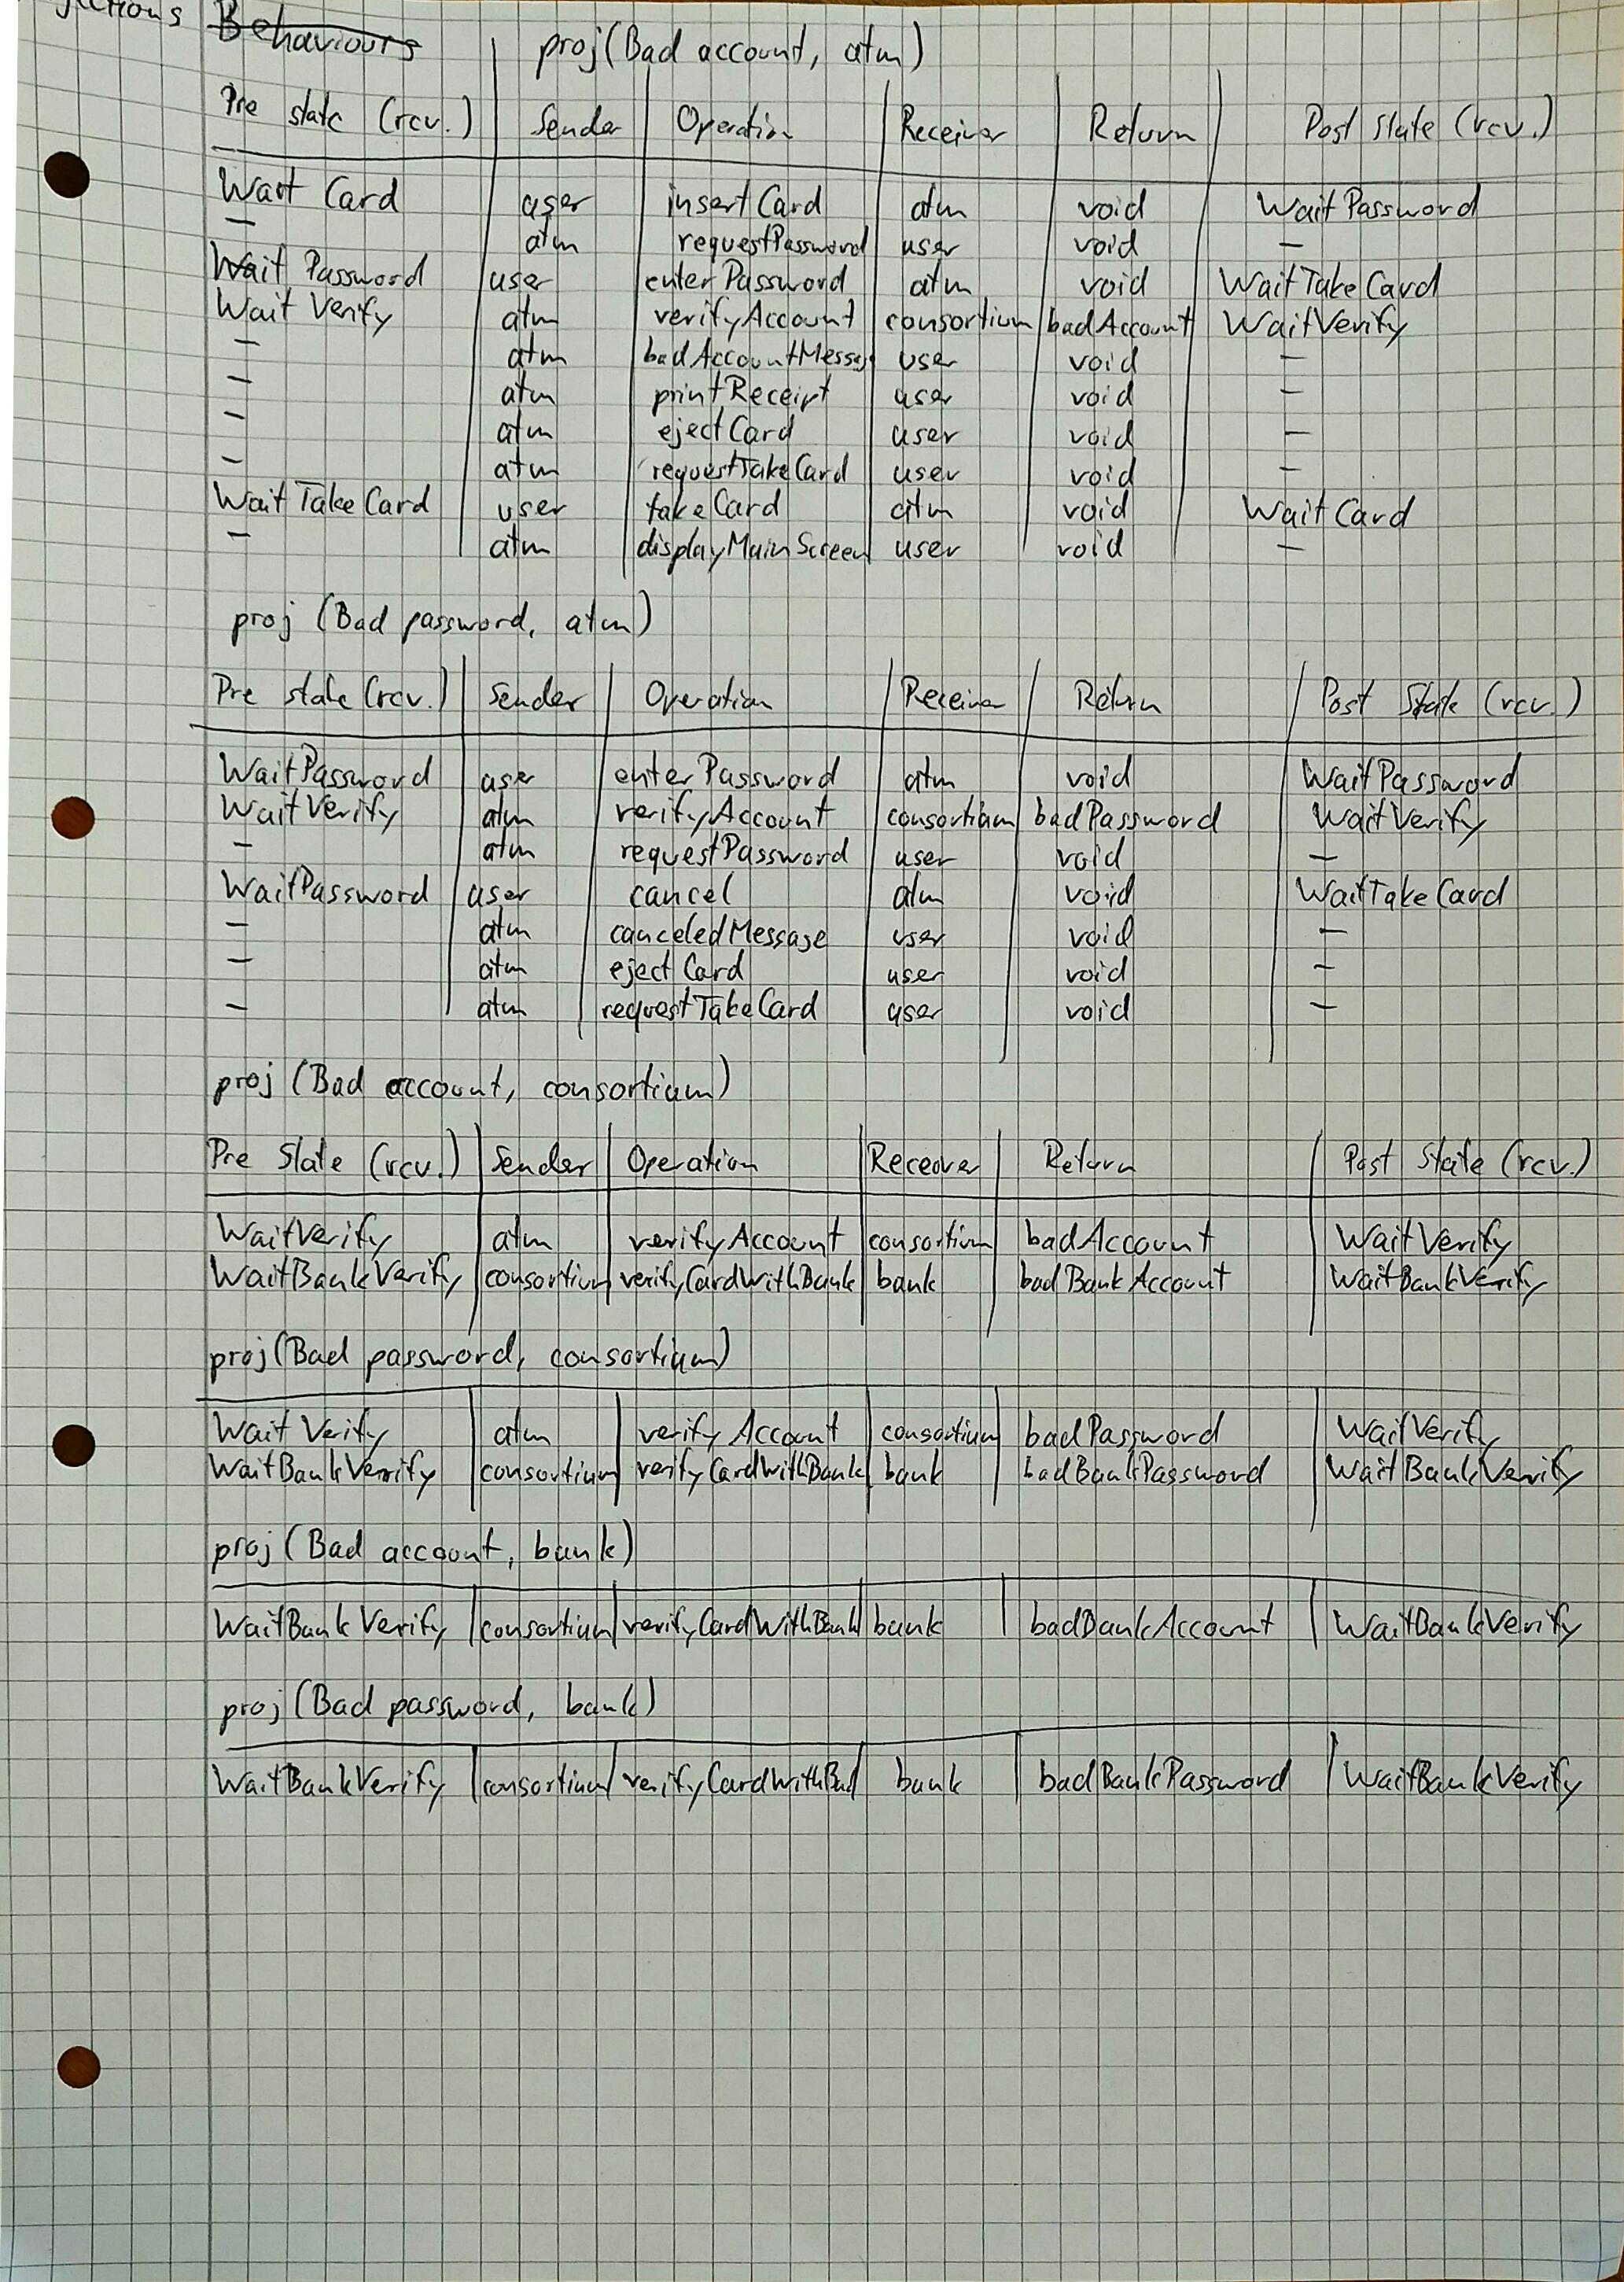 Behaviours
proj(Bad account, atm)
Pre state (rcv.) Sender Operation Receiver Return Post State (rcv.)
Wait Card user insertCard atm void WaitPassword
– atm requestPassword user void –
Wait Password user enterPassword atm void WaitTakeCard
Wait Verify atm verifyAccount consortium badAccount WaitVerify
– atm badAccountMessage user void –
– atm printReceipt user void –
– atm ejectCard user void –
– atm requestTakeCard user void –
WaitTakeCard user takeCard atm void WaitCard
– atm displayMainScreen user void –
proj (Bad password, atm)
Pre state (rcv.) Sender Operation Receiver Return Post State (rcv.)
WaitPassword user enterPassword atm void WaitPassword
WaitVerify atm verifyAccount consortium badPassword WaitVerify
– atm requestPassword user void –
WaitPassword user cancel atm void WaitTakeCard
– atm canceledMessage user void –
– atm ejectCard user void –
– atm requestTakeCard user void –
proj (Bad account, consortium)
Pre State (rcv.) Sender Operation Receover Return Post State (rcv.)
WaitVerify atm verifyAccount consortium badAccount WaitVerify
WaitBankVerify consortium verifyCardWithBank bank badBankAccount WaitBankVerify
proj(Bad password, consortium)
Wait Verify atm verifyAccount consortium badPassword WaitVerify
WaitBankVerify consortium verifyCardWithBank bank badBankPassword WaitBankVerify
proj (Bad account, bank)
WaitBankVerify consortium verifyCardWithBank bank badBankAccount WaitBankVerify
proj (Bad password, bank)
WaitBankVerify consortium verifyCardWithBank bank badBankPassword WaitBankVerify